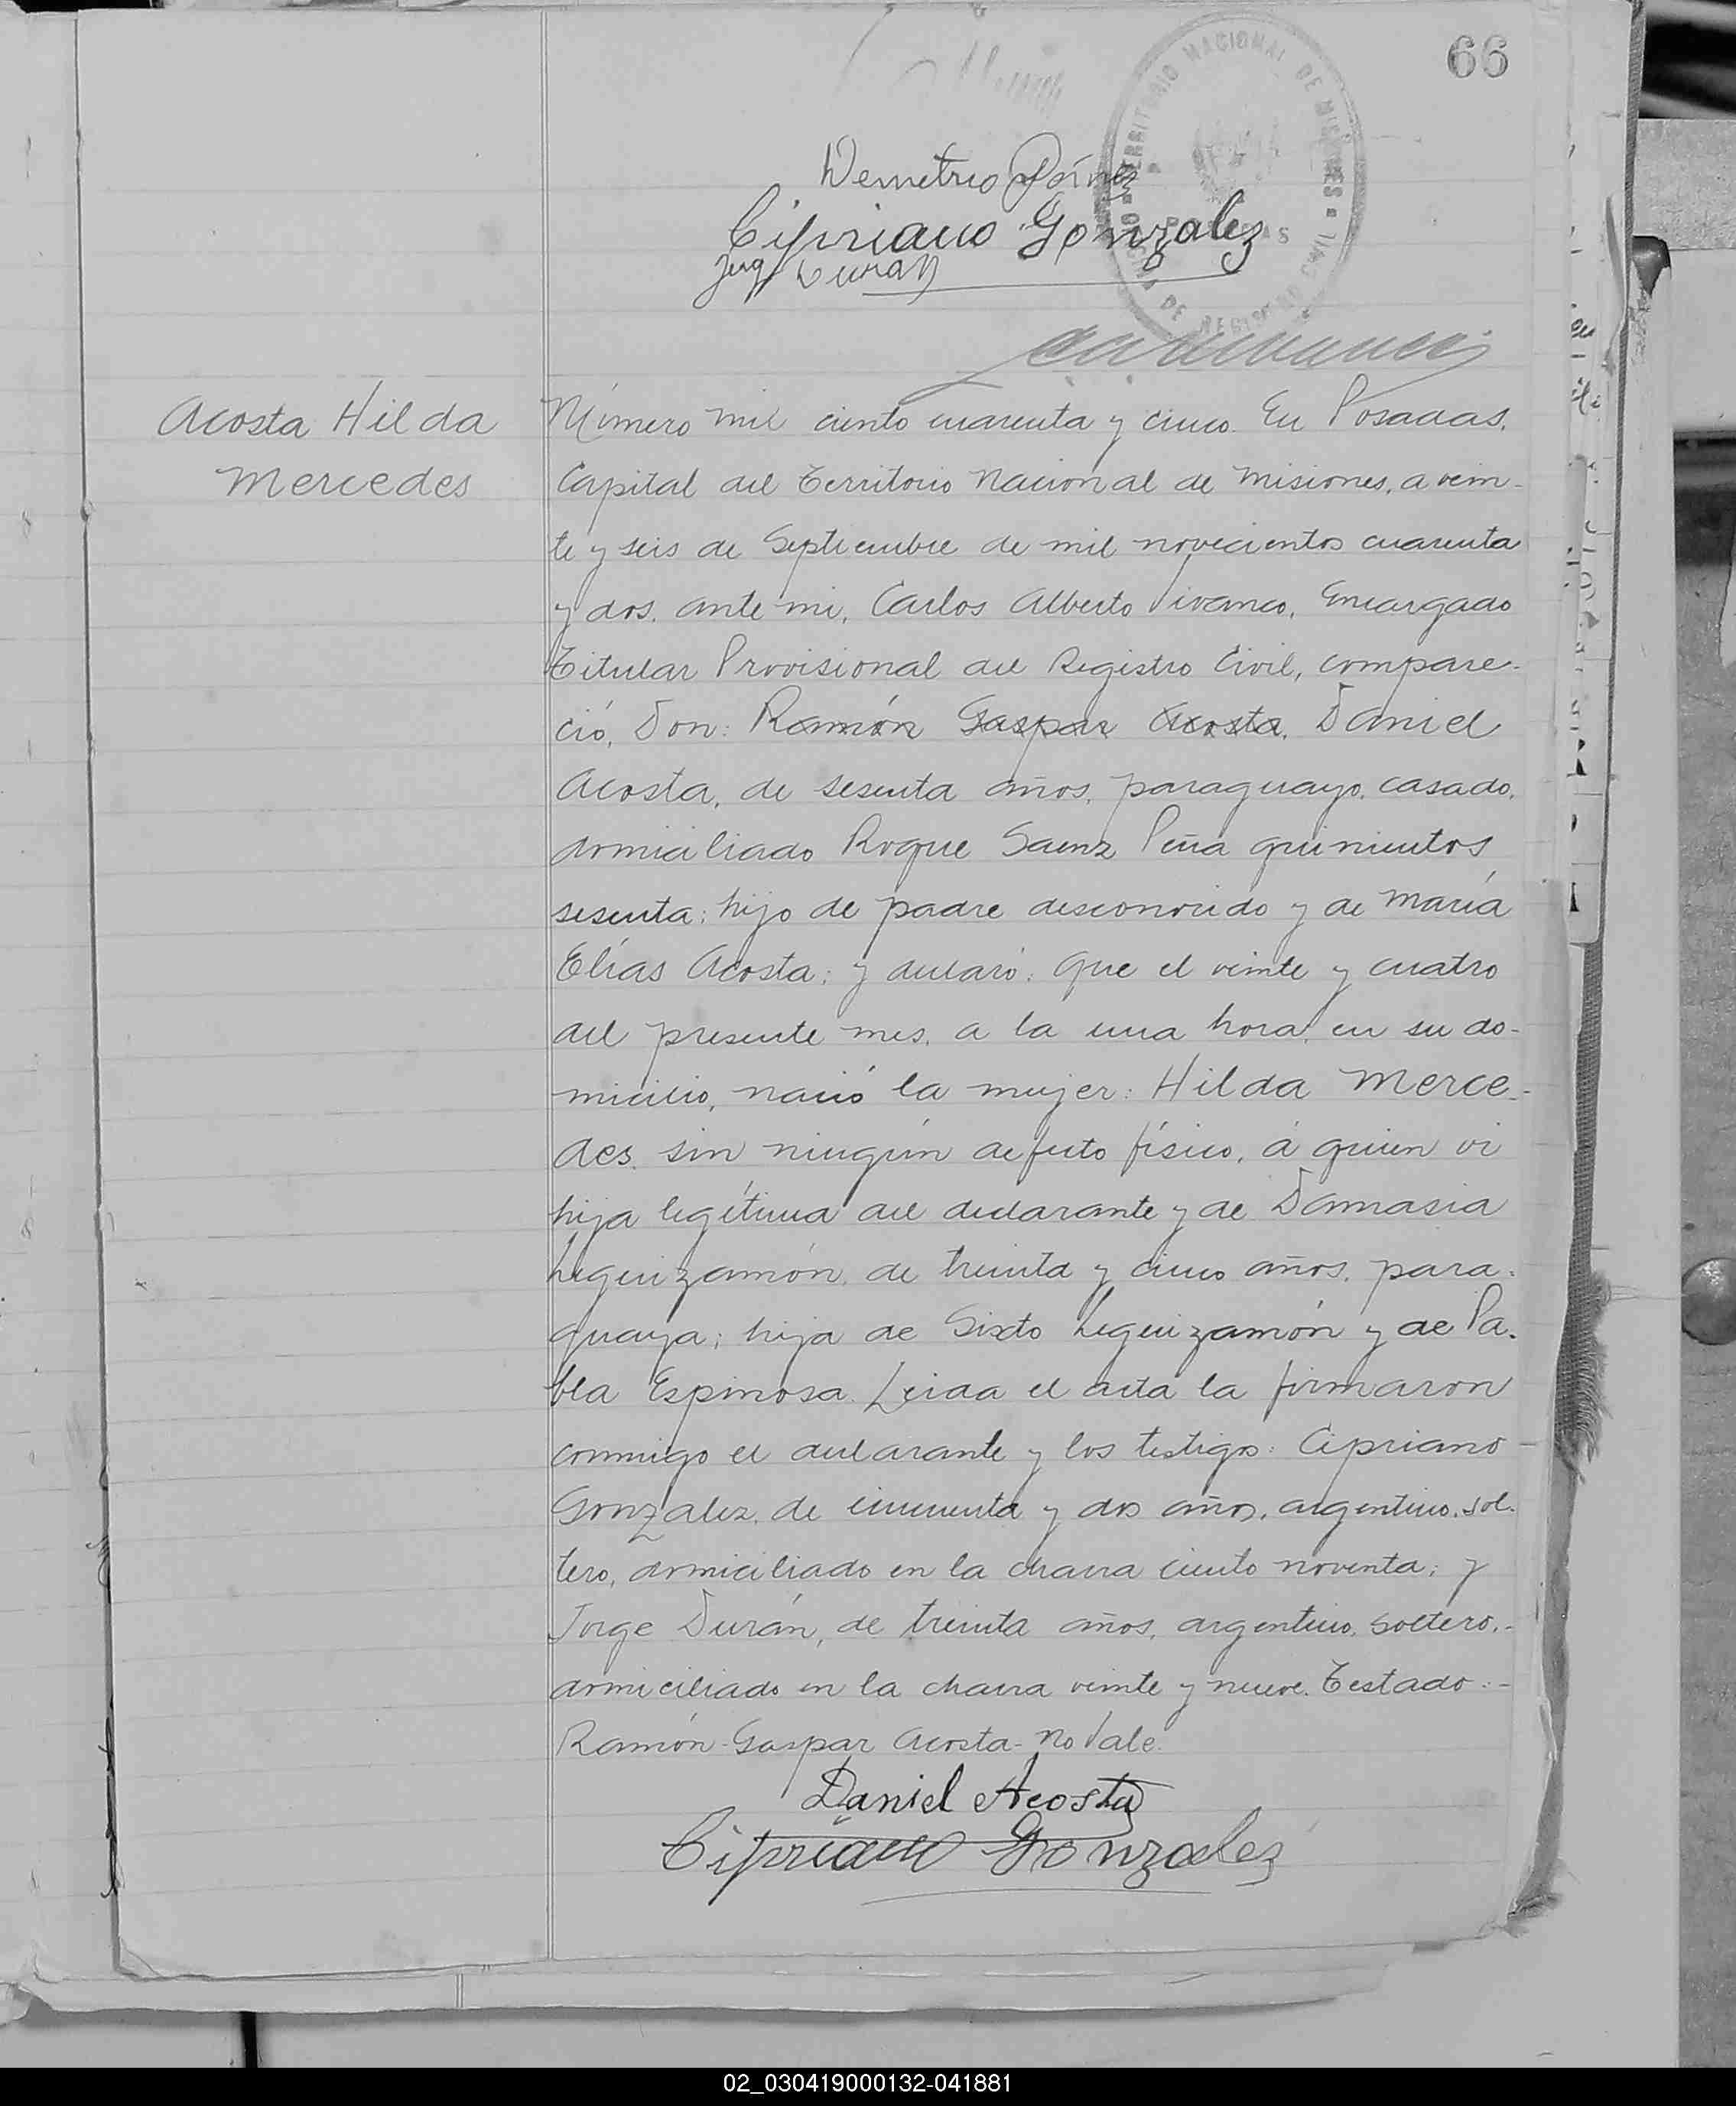 66
TERRITORIO NACIONAL DE MISIONES
Demetrio
Cipriano Gonzalez
Jorge Duran
Acosta Hilda
Mercedes
Número mil ciento cuarenta y cinco. En Posadas,
Capital del Territorio Nacional de Misiones, a vein-
te y seis de Septiembre de mil novecientos cuarenta
y dos, ante mi, Carlos Alberto Vivanco, Encargado
Titular Provisional del Registro Civil, compare-
ció, Don: Ramón Gaspar Acosta, Daniel
Acosta, de sesenta años, paraguayo, casado,
domiciliado Roque Saenz Peña quinientos
sesenta; hijo de padre desconocido y de María
Elías Acosta; y declaró: Que el veinte y cuatro
del presente mes, a la una hora, en su do-
micilio, nació la mujer: Hilda Merce-
des, sin ningún defecto físico, á quien vi
hija legítima del declarante y de Damasia
Leguizamón, de treinta y cinco años, para-
guaya; hija de Sixto Leguizamón y de Pa-
bla Espinosa. Leida el acta la firmaron
conmigo el declarante y los testigos: Cipriano
Gonzalez, de cincuenta y dos años, argentino, sol-
tero, domiciliado en la chacra ciento noventa; y
Jorge Durán, de treinta años, argentino, soltero,-
domiciliado en la chacra veinte y nueve. Testado:-
Ramón-Gaspar Acosta-No Vale.
Daniel Acosta
Cipriano Gonzalez
02_030419000132-041881